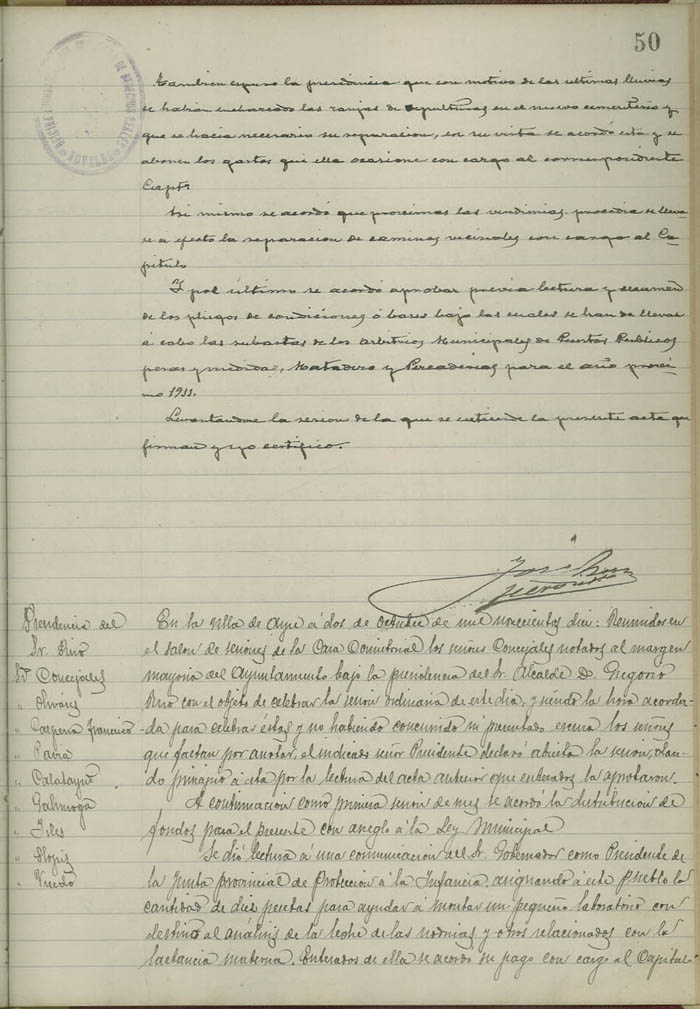 50
Tambien expuso la presidencia que con motivo de las ultimas lluvias
se habian embarcado las zanjas de sepulturas en el nuevo cementerio y
que se hacia necesario su reparacion, en su vista se acordó esta y se
abonen los gastos que ella ocasione con cargo al correspondiente
Capto.
Asi mismo se acordó que proximas las vendimias, procedia se lleva-
se a efecto la reparacion de caminos vecinales con cargo al Ca-
pitulo
Y pol último se acordó aprobar previa lectura y examen
de los pliegos de condiciones ó bases bajo las cuales se han de llevar
á cabo las subastas de los arbitrios Municipales de Puestos Publicos
pesas y medidas, Matadero y Pescaderias para el año proxi-
mo 1911.
Levantandose la sesion de la que se extiende la presente acta que
firman y yo certifico.
Presidencia del
Sr. Pino
Sres Concejales
" Olivares
" Francisco
" Parra
" Calatayud
" Galiurga
" Giles
" Llopis
En la villa de Ayre á dos de Octubre de mil novecientos diez: Reunidos en
el salon de sesiones de la Casa Consistorial los señores Concejales notados al margen
mayoria del Ayuntamiento bajo la presidencia del Sr. Alcalde D. Gregorio
Pino con el objeto de celebrar la sesion ordinaria de este dia, y siendo la hora acorda-
da para celebrar éstas y no habiendo concurrido ni presentado escusa los señores
que faltan por anotar, el indicado señor Presidente declaró abierta la sesion, dan-
do principio á esta por la lectura del acta anterior que enterados la aprobaron.
A continuacion como primera sesion de mes se acordó la distribucion de
fondos para el presente con arreglo á la Ley Municipal
Se dió lectura á una comunicacion del Sr. Gobernador como Presidente de
la Junta provincial de Proteccion á la Infancia, asignando á este pueblo la
cantidad de diez pesetas para ayudar á montar un pequeño laboratorio con
destino al analisis de la leche de las nodrizas y otros relacionados con la
lactancia materna. Enterados de ella se acordó su pago con cargo al Capitulo